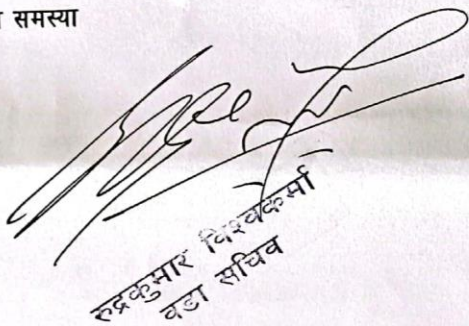 समस्या
रुद्रकुमार विश्वकर्मा
वडा सचिव